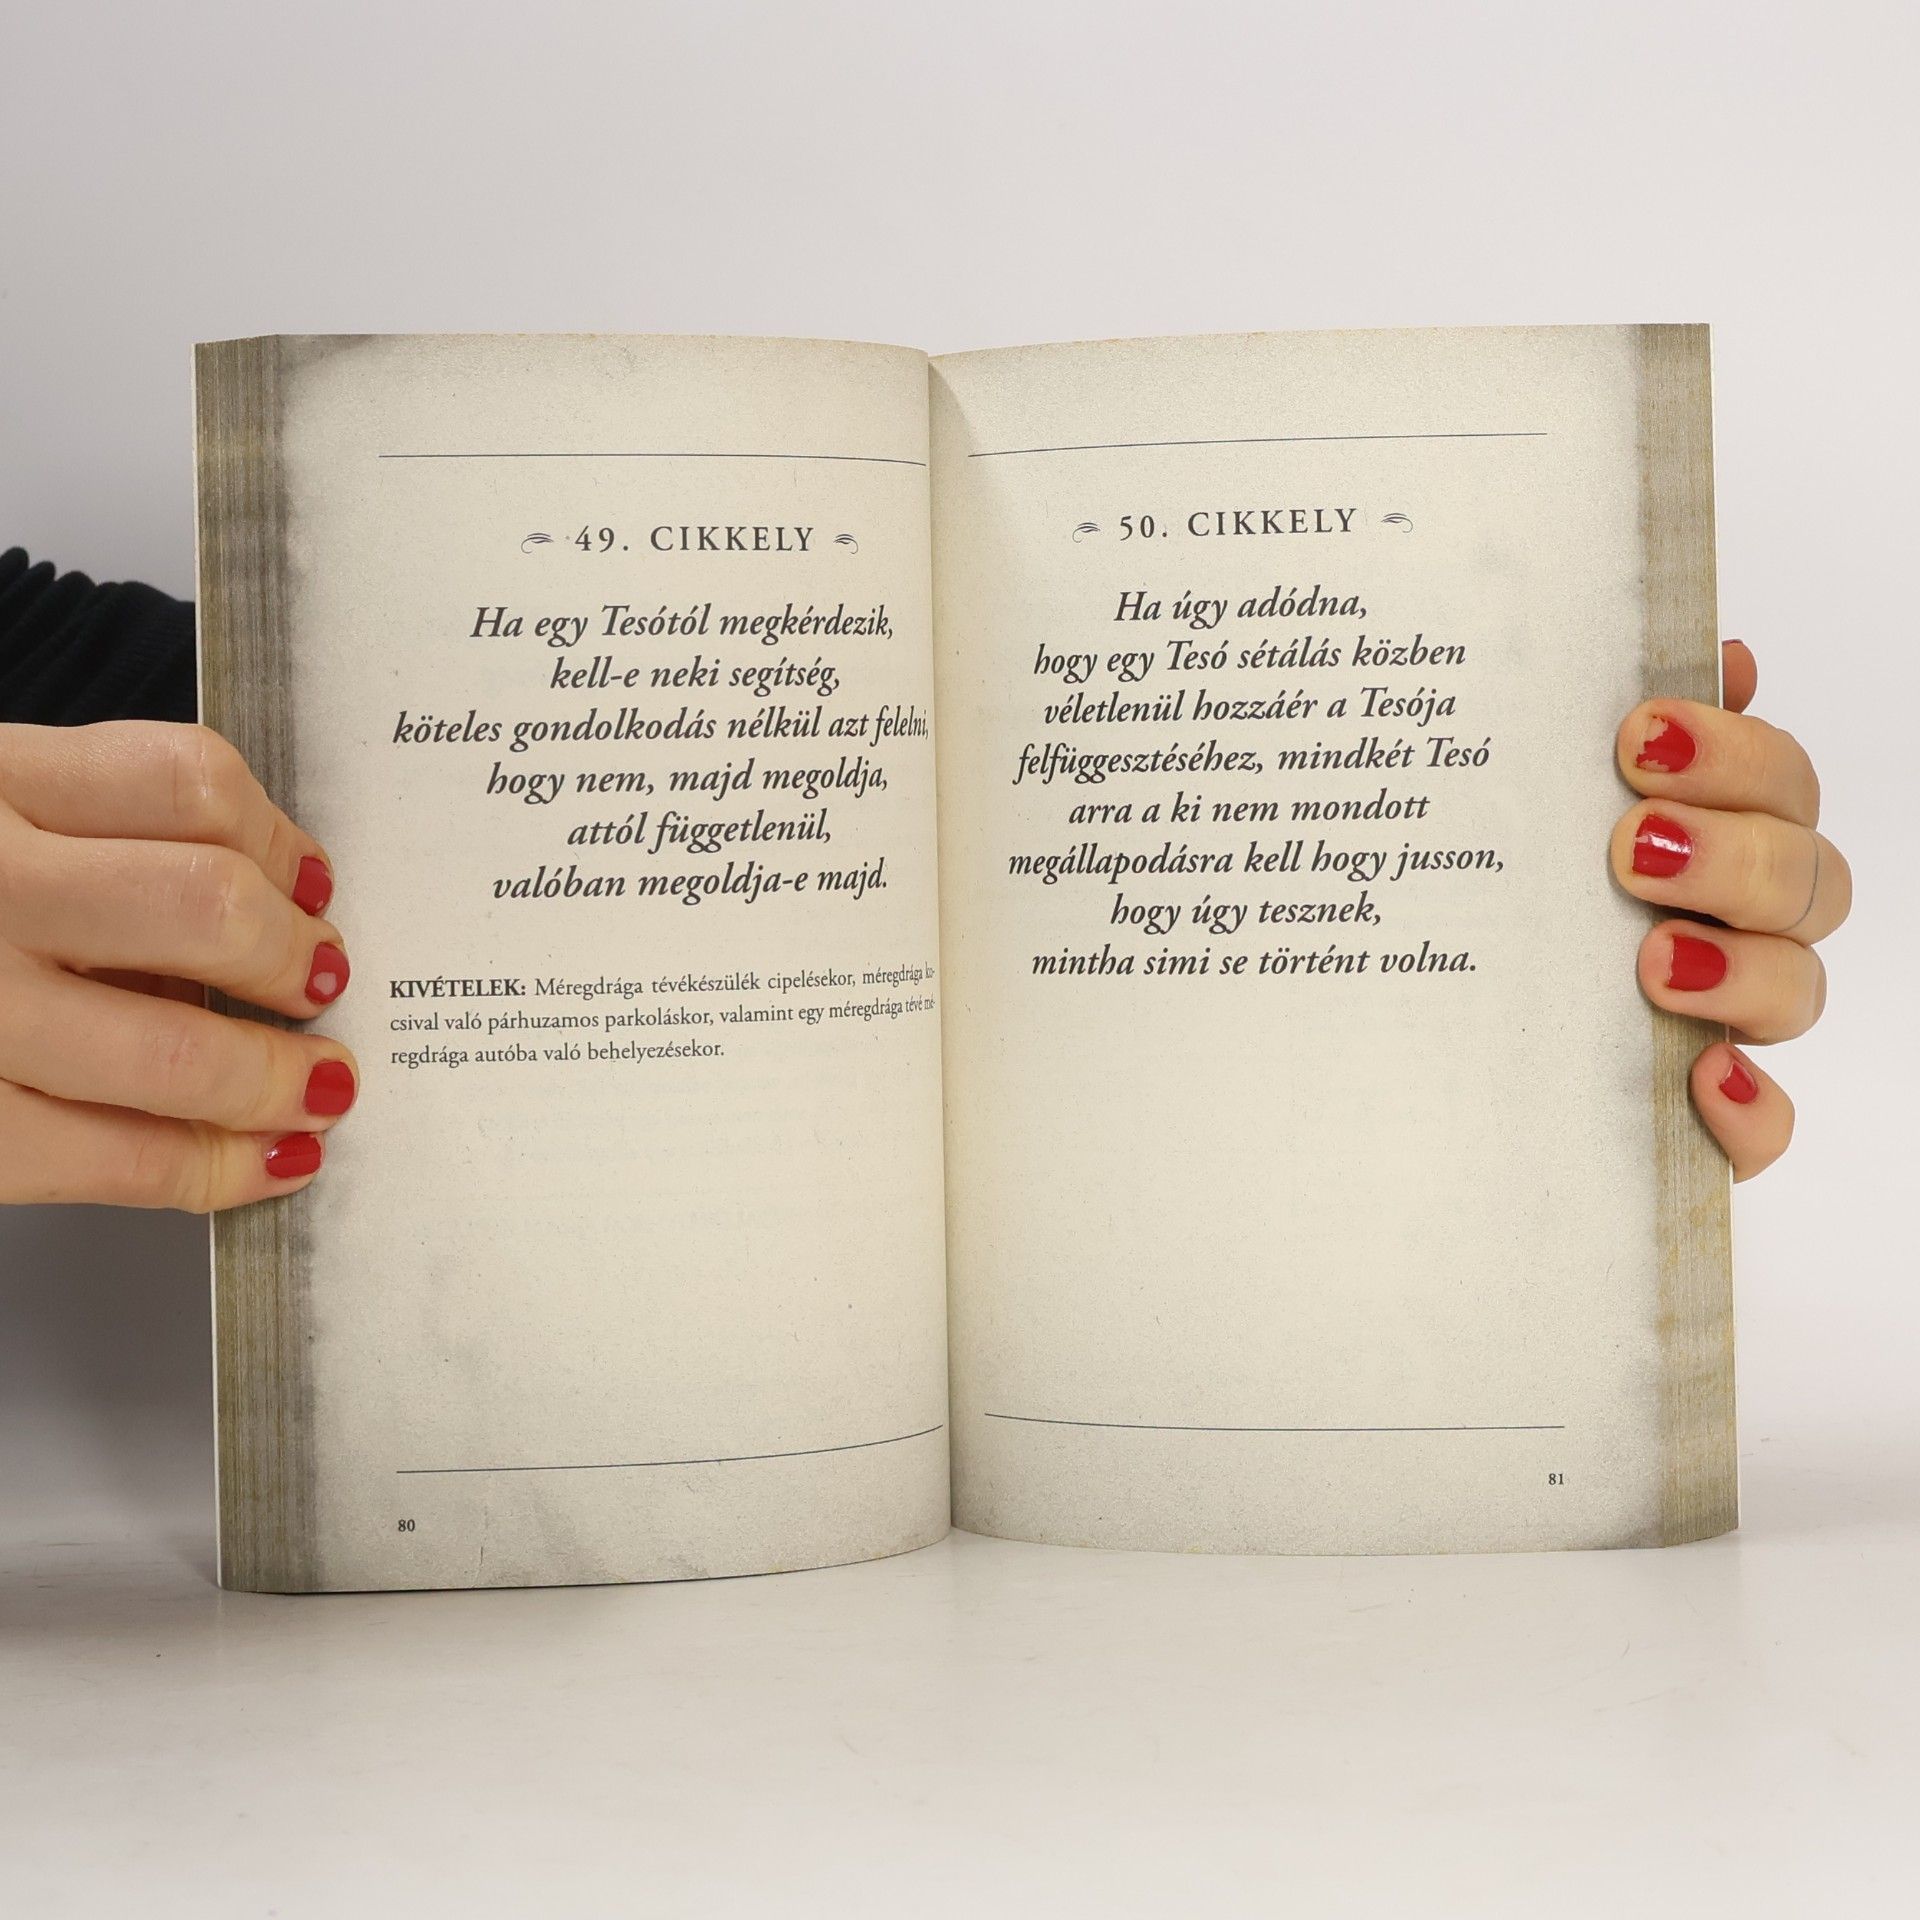 49. CIKKELY
Ha egy Tesótól megkérdezik,
kell-e neki segítség,
köteles gondolkodás nélkül azt felelni,
hogy nem, majd megoldja,
attól függetlenül,
valóban megoldja-e majd.
KIVÉTELEK: Méregdrága tévékészülék cipelésekor, méregdrága ko-
csival való párhuzamos parkoláskor, valamint egy méregdrága tévé mé-
regdrága autóba való behelyezésekor.
80
50. CIKKELY
Ha úgy adódna,
hogy egy Tesó sétálás közben
véletlenül hozzáér a Tesója
felfüggesztéséhez, mindkét Tesó
arra a ki nem mondott
megállapodásra kell hogy jusson,
hogy úgy tesznek,
mintha simi se történt volna.
81